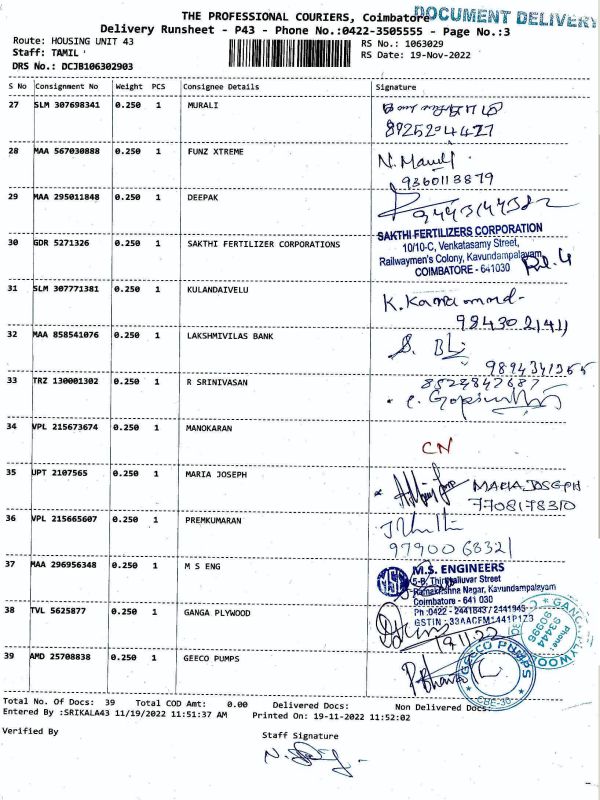 THE PROFESSIONAL COURIERS, Coimbatore
DOCUMENT DELIVERY
Delivery Runsheet - P43 - Phone No.:0422-3505555 - Page No.:3
Route: HOUSING UNIT 43
RS No.: 1063029
Staff: TAMIL
RS Date: 19-Nov-2022
DRS No.: DCJB106302903
S No Consignment No Weight PCS Consignee Details Signature
27 SLM 307698341 0.250 1 MURALI
28 MAA 567030888 0.250 1 FUNZ XTREME
9360113879
29 MAA 295011848 0.250 1 DEEPAK
30 GDR 5271326 0.250 1 SAKTHI FERTILIZER CORPORATIONS
SAKTHI FERTILIZERS CORPORATION
10/10-C, Venkatasamy Street,
Railwaymen's Colony, Kavundampalayam,
COIMBATORE - 641030
31 SLM 307771381 0.250 1 KULANDAIVELU
32 MAA 858541076 0.250 1 LAKSHMIVILAS BANK
33 TRZ 130001302 0.250 1 R SRINIVASAN
34 VPL 215673674 0.250 1 MANOKARAN
CN
35 UPT 2107565 0.250 1 MARIA JOSEPH
MARIA JOSEPH
7708178310
36 VPL 215665607 0.250 1 PREMKUMARAN
9790068321
37 MAA 296956348 0.250 1 M S ENG
M.S. ENGINEERS
5-B, Thiruvalluvar Street
Ramakrishna Nagar, Kavundampalayam
Coimbatore - 641 030
Ph :0422 - 2441643 / 2441943
GSTIN : 33AACFM1441P1Z3
38 TVL 5625877 0.250 1 GANGA PLYWOOD
19.11.22
GANGA PLYWOOD
Phone:
93444
90996
39 AMD 25708838 0.250 1 GEECO PUMPS
GEECO PUMPS
CBE-30
Total No. Of Docs: 39 Total COD Amt: 0.00 Delivered Docs: Non Delivered Docs:
Entered By :SRIKALA43 11/19/2022 11:51:37 AM Printed On: 19-11-2022 11:52:02
Verified By
Staff Signature